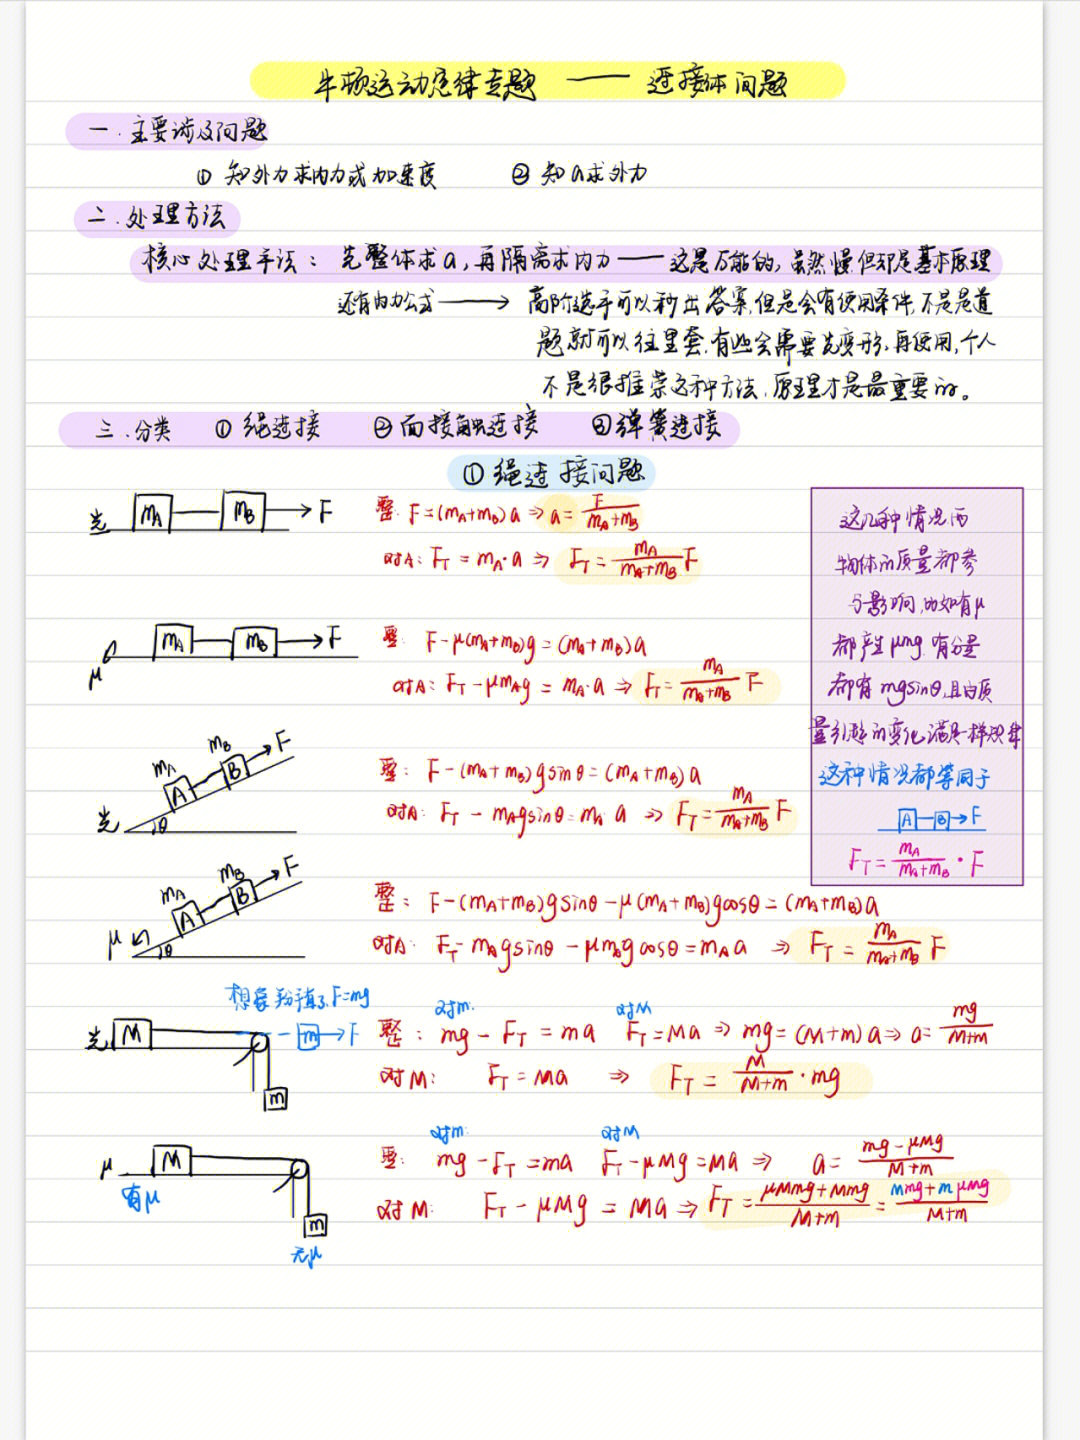 牛顿运动定律专题 —— 连接体问题
一.主要涉及问题
① 知外力求内力或加速度 ② 知a求外力
二.处理方法
核心处理手法:先整体求a,再隔离求内力——这是万能的,虽然慢但却是基本原理
还有内力公式 ——→ 高阶选手可以秒出答案,但是会有使用条件,不是是道
题就可以往里套,有些会需要先变形,再使用,个人
不是很推荐这种方法,原理才是最重要的。
三.分类 ① 绳连接 ② 面接触连接 ③ 弹簧连接
① 绳连接问题
光 mA mB F
整: F=(mA+mB)a ⇒ a=F/(mA+mB)
对A: FT=mA·a ⇒ FT=mA/(mA+mB) F
μ mA mB F
整: F-μ(mA+mB)g=(mA+mB)a
对A: FT-μmAg=mA·a ⇒ FT=mA/(mA+mB) F
光 θ mA A mB B F
整: F-(mA+mB)gsinθ=(mA+mB)a
对A: FT-mAgsinθ=mA a ⇒ FT=mA/(mA+mB) F
μ θ mA A mB B F
整: F-(mA+mB)gsinθ-μ(mA+mB)gcosθ=(mA+mB)a
对A: FT-mAgsinθ-μmAgcosθ=mAa ⇒ FT=mA/(mA+mB) F
这几种情况两
物体的质量都参
与影响,比如有μ
都产生μmg,有分量
都有mgsinθ,且由质
量引起的变化满足一样规律
这种情况都等同于
A B → F
FT=mA/(mA+mB)·F
想象拉直了,F=mg
光 M m → F m
对m: 对M
整: mg-FT=ma FT=Ma ⇒ mg=(M+m)a ⇒ a=mg/(M+m)
对M: FT=Ma ⇒ FT=M/(M+m)·mg
μ M m
有μ
无μ
对m: 对M
整: mg-FT=ma FT-μMg=Ma ⇒ a=(mg-μMg)/(M+m)
对M: FT-μMg=Ma ⇒ FT=(μMmg+Mmg)/(M+m)=(Mmg+mμMg)/(M+m)